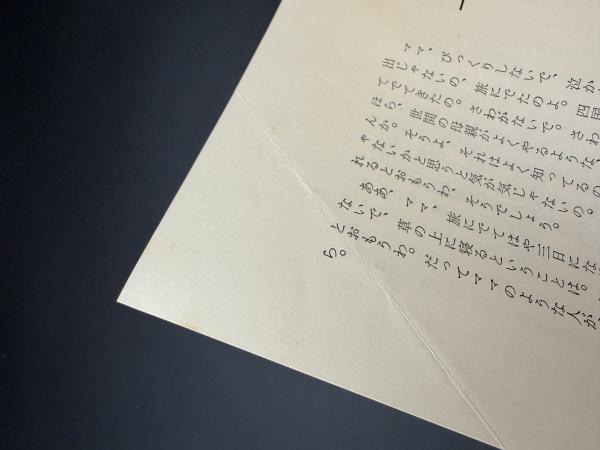 ママ、びっくりしないで、泣か
出じゃないの、旅にでたのよ。四国
てでてきたの。さわがないで。さわ
ほら、世間の母親がよくやるような、
んか。そうよ、それはよく知ってるの
ゃないかと思うと気が気じゃないの。
れるとおもうわ、そうでしょう。
ああ、ママ、旅にでてはや三日にな
ないで、草の上に寝るということは。
とおもうわ。だってママのような人が
ら。